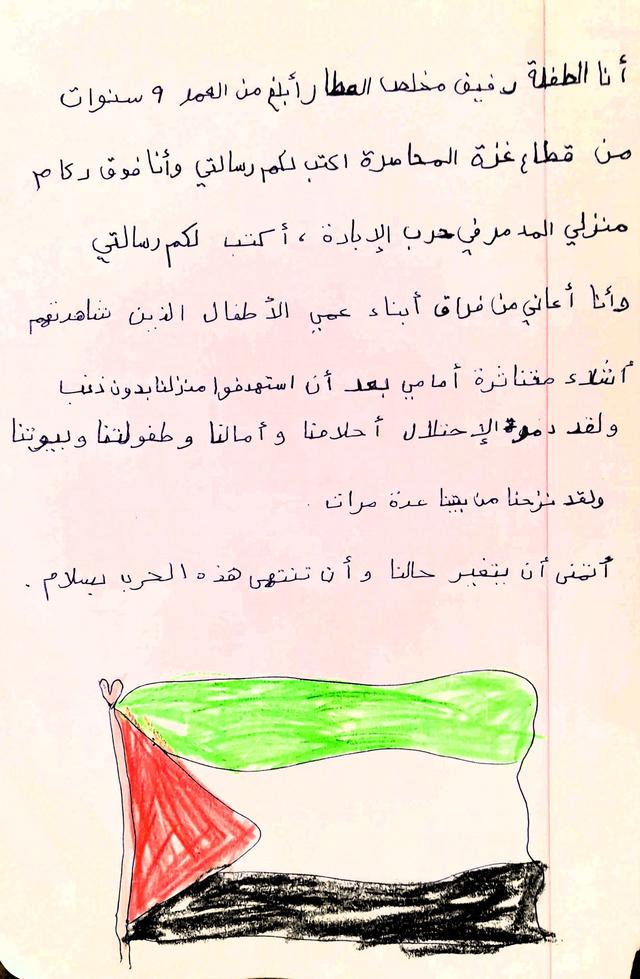 أنا الطفلة رفيف مخلص العطار أبلغ من العمر ٩ سنوات
من قطاع غزة المحاصرة اكتب لكم رسالتي وأنا فوق ركام
منزلي المدمر في حرب الإبادة ، أكتب لكم رسالتي
وأنا أعاني من فراق أبناء عمي الأطفال الذين شاهدتهم
أشلاء متناثرة أمامي بعد أن استهدفوا منزلنا بدون ذنب
ولقد دمرة الإحتلال أحلامنا وأمالنا وطفولتنا وبيوتنا
ولقد نزحنا من بيتنا عدة مرات .
أتمنى أن يتغير حالنا وأن تنتهي هذه الحرب بسلام .